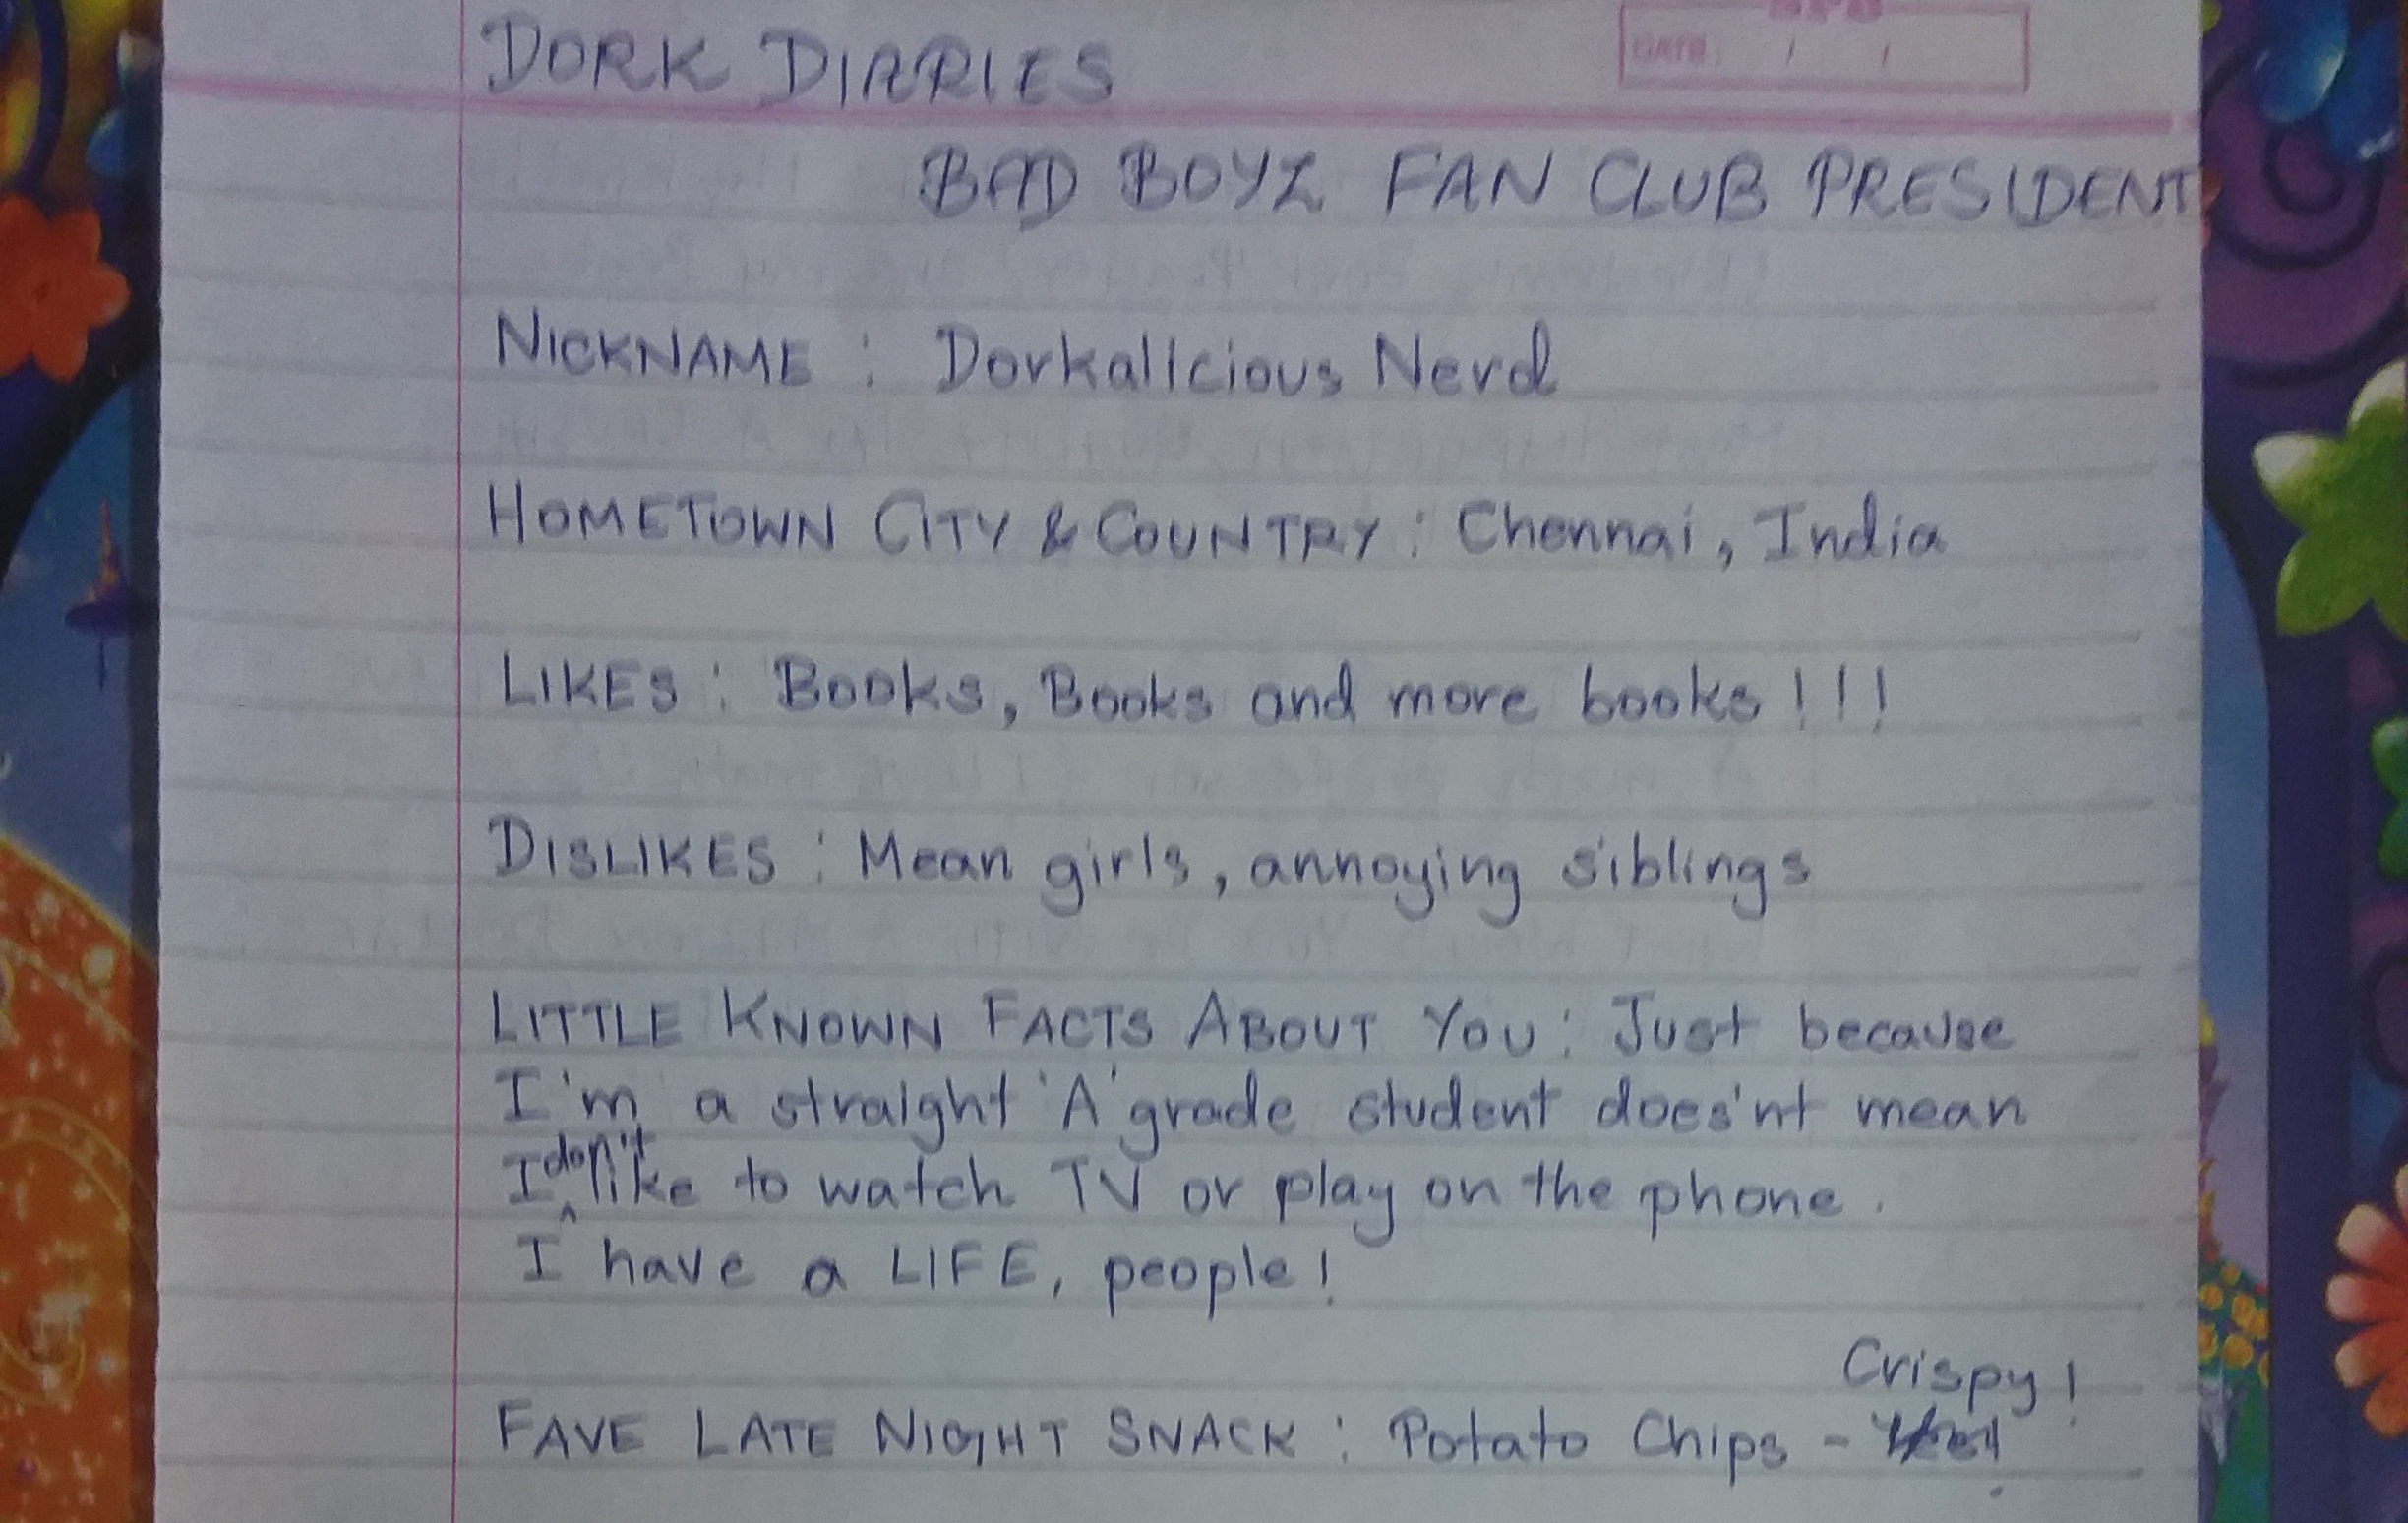 DORK DIARIES
DATE: / /
BAD BOYZ FAN CLUB PRESIDENT
NICKNAME : Dorkalicious Nerd
HOMETOWN CITY & COUNTRY : Chennai, India
LIKES : Books, Books and more books!!!
DISLIKES : Mean girls, annoying siblings
LITTLE KNOWN FACTS ABOUT YOU : Just because
I'm a straight 'A' grade student does'nt mean
I don't like to watch TV or play on the phone.
I have a LIFE, people!
Crispy!
FAVE LATE NIGHT SNACK : Potato Chips -